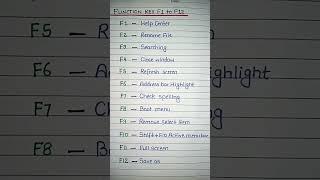 FUNCTION KEY F1 to F12
F1 — Help Center
F2 — Rename File
F3 — Searching
F4 — Close window
F5 — Refresh screen
F6 — Address bar Highlight
F7 — Check spelling
F8 — Boot menu
F9 — Remove Select Item
F10 — Shift+F10 Active menubar
F11 — Full screen
F12 — Save as
F5 —
F6 — A
Highlight
F7 —
F8 — B